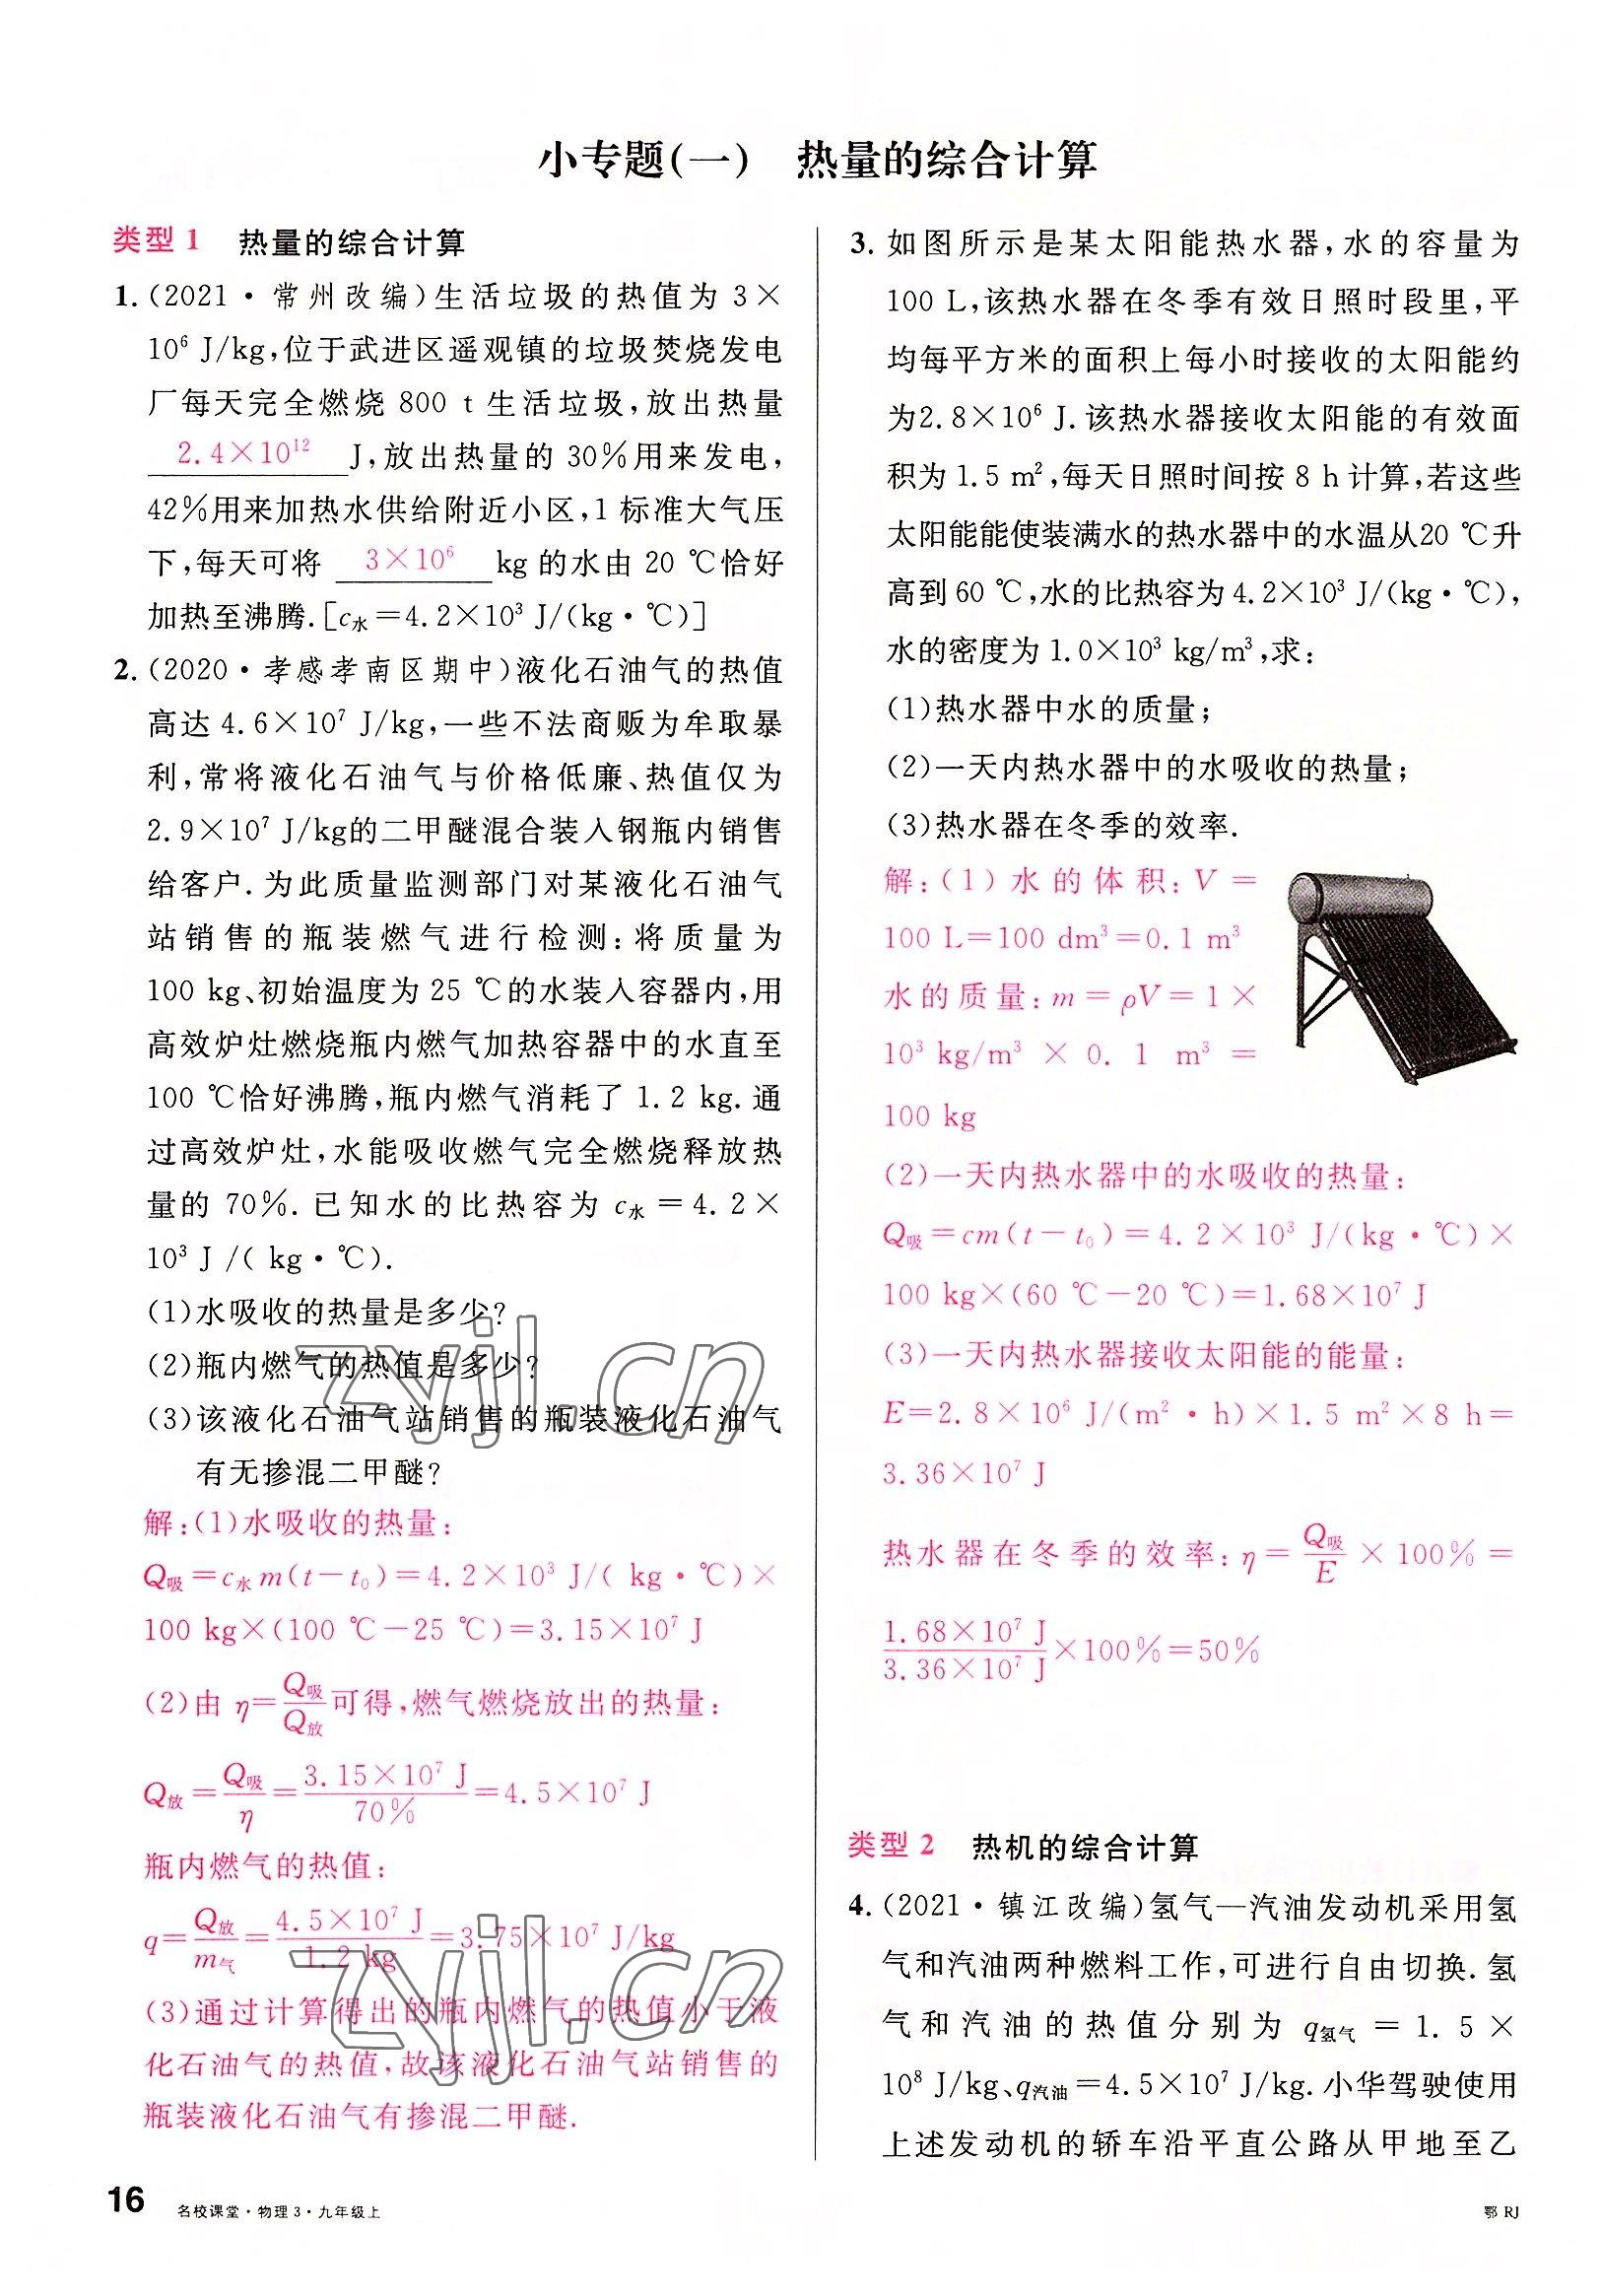 小专题(一)　热量的综合计算
类型 1　热量的综合计算
1. (2021·常州改编)生活垃圾的热值为 3×
10⁶ J/kg,位于武进区遥观镇的垃圾焚烧发电
厂每天完全燃烧 800 t 生活垃圾,放出热量
2.4×10¹² J,放出热量的 30%用来发电,
42%用来加热水供给附近小区,1 标准大气压
下,每天可将 3×10⁶ kg 的水由 20 ℃恰好
加热至沸腾.[c水=4.2×10³ J/(kg·℃)]
2. (2020·孝感孝南区期中)液化石油气的热值
高达 4.6×10⁷ J/kg,一些不法商贩为牟取暴
利,常将液化石油气与价格低廉、热值仅为
2.9×10⁷ J/kg的二甲醚混合装入钢瓶内销售
给客户.为此质量监测部门对某液化石油气
站销售的瓶装燃气进行检测:将质量为
100 kg、初始温度为 25 ℃的水装入容器内,用
高效炉灶燃烧瓶内燃气加热容器中的水直至
100 ℃恰好沸腾,瓶内燃气消耗了 1.2 kg.通
过高效炉灶,水能吸收燃气完全燃烧释放热
量的 70%.已知水的比热容为 c水=4.2×
10³ J /( kg·℃).
(1)水吸收的热量是多少?
(2)瓶内燃气的热值是多少?
(3)该液化石油气站销售的瓶装液化石油气
有无掺混二甲醚?
解:(1)水吸收的热量:
Q吸=c水m(t-t₀)=4.2×10³ J/( kg·℃)×
100 kg×(100 ℃-25 ℃)=3.15×10⁷ J
(2)由 η=Q吸/Q放可得,燃气燃烧放出的热量:
Q放=Q吸/η=3.15×10⁷ J/70%=4.5×10⁷ J
瓶内燃气的热值:
q=Q放/m气=4.5×10⁷ J/1.2 kg=3.75×10⁷ J/kg
(3)通过计算得出的瓶内燃气的热值小于液
化石油气的热值,故该液化石油气站销售的
瓶装液化石油气有掺混二甲醚.
3. 如图所示是某太阳能热水器,水的容量为
100 L,该热水器在冬季有效日照时段里,平
均每平方米的面积上每小时接收的太阳能约
为2.8×10⁶ J.该热水器接收太阳能的有效面
积为 1.5 m²,每天日照时间按 8 h 计算,若这些
太阳能能使装满水的热水器中的水温从20 ℃升
高到 60 ℃,水的比热容为 4.2×10³ J/(kg·℃),
水的密度为 1.0×10³ kg/m³,求:
(1)热水器中水的质量;
(2)一天内热水器中的水吸收的热量;
(3)热水器在冬季的效率.
解:(1)水的体积:V=
100 L=100 dm³=0.1 m³
水的质量:m=ρV=1×
10³ kg/m³ × 0.1 m³ =
100 kg
(2)一天内热水器中的水吸收的热量:
Q吸=cm(t-t₀)=4.2×10³ J/(kg·℃)×
100 kg×(60 ℃-20 ℃)=1.68×10⁷ J
(3)一天内热水器接收太阳能的能量:
E=2.8×10⁶ J/(m²·h)×1.5 m²×8 h=
3.36×10⁷ J
热水器在冬季的效率:η=Q吸/E×100%=
1.68×10⁷ J/3.36×10⁷ J×100%=50%
类型 2　热机的综合计算
4. (2021·镇江改编)氢气—汽油发动机采用氢
气和汽油两种燃料工作,可进行自由切换.氢
气和汽油的热值分别为 q氢气=1.5×
10⁸ J/kg、q汽油=4.5×10⁷ J/kg.小华驾驶使用
上述发动机的轿车沿平直公路从甲地至乙
16 名校课堂·物理3·九年级上
鄂 RJ
zyjl.cn
zyjl.cn